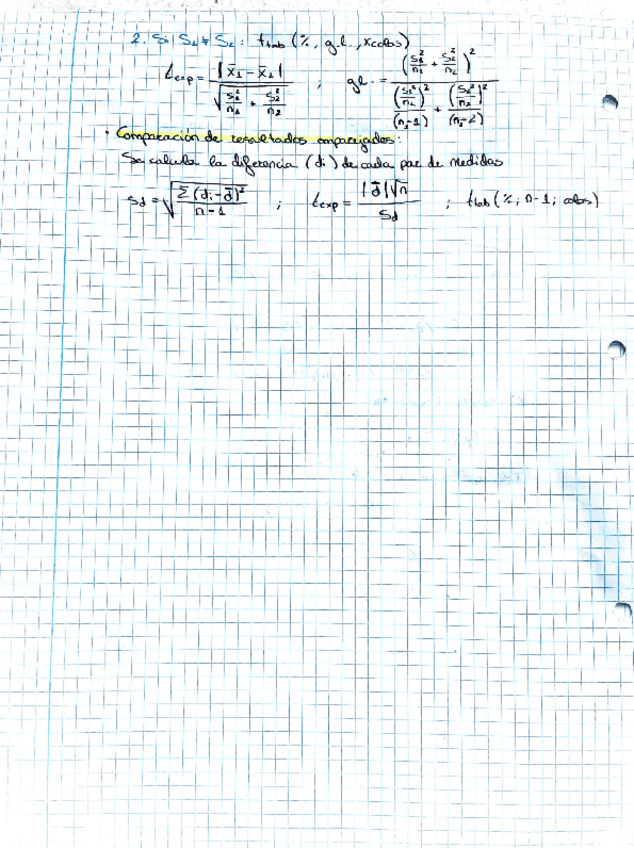 2. Si S₁ ≠ S₂: t_tab (%, g.l., x colas)
t_exp = |x̄₁ - x̄₁| / √(s₁²/n₁ + s₂²/n₂) ; gl. = (s₁²/n₁ + s₂²/n₂)² / ((s₁²/n₁)²/(n₁-1) + (s₂²/n₂)²/(n₂-2))
· Comparación de resultados emparejados:
Se calcula la diferencia (di) de cada par de medidas
Sd = √(Σ(di - d̄)²/n-1) ; t_exp = |d̄|√n / Sd ; t_tab (%; n-1; colas)